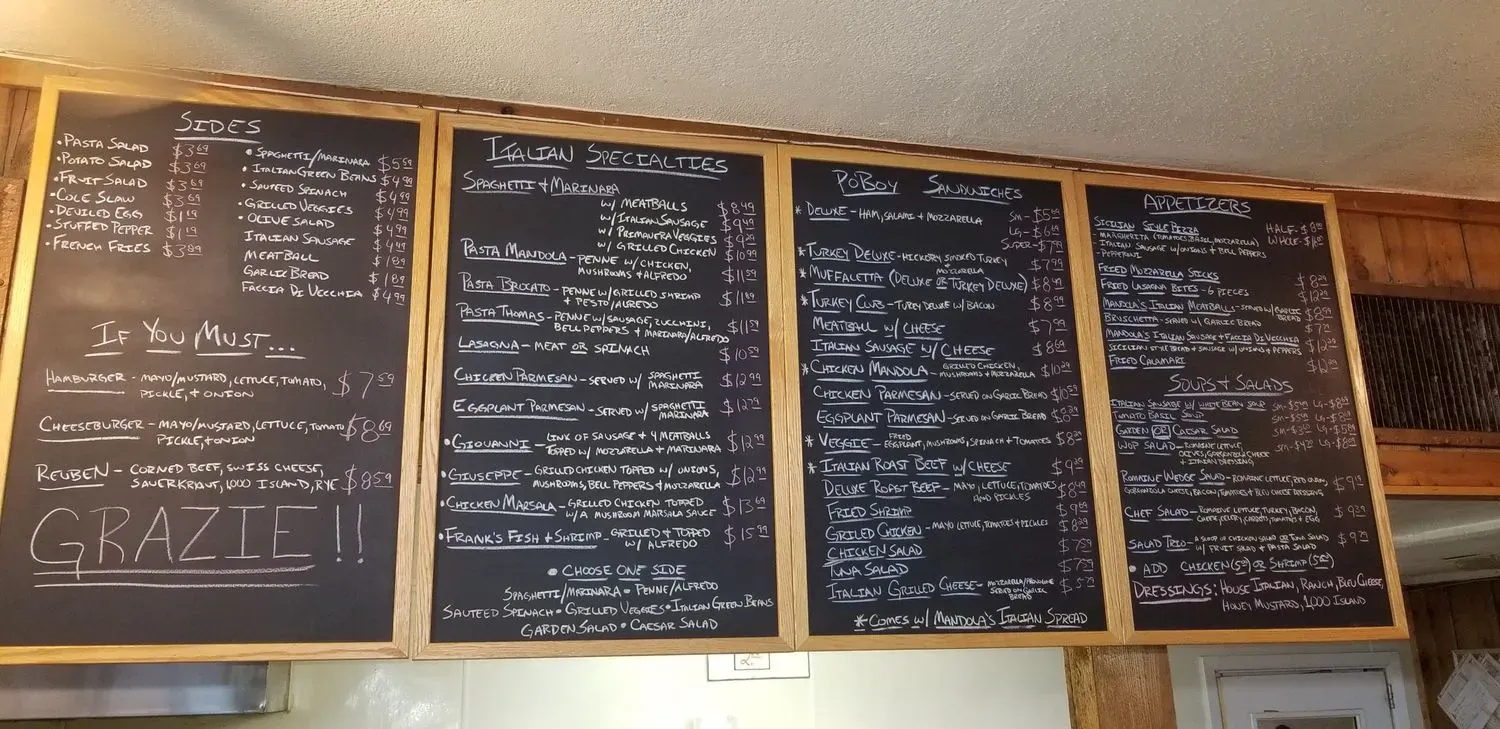 SIDES
•PASTA SALAD $3.69
•POTATO SALAD $3.69
•FRUIT SALAD $3.69
•COLE SLAW $3.69
•DEVILED EGG $1.19
•STUFFED PEPPER $1.19
•FRENCH FRIES $3.89
•SPAGHETTI/MARINARA $5.59
•ITALIAN GREEN BEANS $4.99
•SAUTEED SPINACH $4.99
•GRILLED VEGGIES $4.99
•OLIVE SALAD $4.99
ITALIAN SAUSAGE $4.49
MEATBALL $1.89
GARLIC BREAD $1.89
FACCIA DI VECCHIA $4.99
IF YOU MUST...
HAMBURGER - MAYO/MUSTARD, LETTUCE, TOMATO, $7.59
PICKLE, + ONION
CHEESEBURGER - MAYO/MUSTARD, LETTUCE, TOMATO $8.69
PICKLE, + ONION
REUBEN - CORNED BEEF, SWISS CHEESE, $8.59
SAUERKRAUT, 1,000 ISLAND, RYE
GRAZIE!!
ITALIAN SPECIALTIES
SPAGHETTI + MARINARA
W/ MEATBALLS $8.49
W/ ITALIAN SAUSAGE $9.49
W/ PRIMAVERA VEGGIES $9.29
W/ GRILLED CHICKEN $10.99
PASTA MANDOLA - PENNE W/ CHICKEN, $11.59
MUSHROOMS + ALFREDO
PASTA BROCATO - PENNE W/ GRILLED SHRIMP $11.89
+ PESTO/ALFREDO
PASTA THOMAS - PENNE W/ SAUSAGE, ZUCCHINI, $11.59
BELL PEPPERS + MARINARA/ALFREDO
LASAGNA - MEAT OR SPINACH $10.59
CHICKEN PARMESAN - SERVED W/ SPAGHETTI $12.99
MARINARA
EGGPLANT PARMESAN - SERVED W/ SPAGHETTI $12.79
MARINARA
•GIOVANNI - LINK OF SAUSAGE + 4 MEATBALLS $12.99
TOPPED W/ MOZZARELLA + MARINARA
•GIUSEPPE - GRILLED CHICKEN TOPPED W/ ONIONS, $12.99
MUSHROOMS, BELL PEPPERS + MOZZARELLA
•CHICKEN MARSALA - GRILLED CHICKEN TOPPED $13.69
W/ A MUSHROOM MARSALA SAUCE
•FRANK'S FISH + SHRIMP - GRILLED + TOPPED $15.99
W/ ALFREDO
•CHOOSE ONE SIDE
SPAGHETTI/MARINARA • PENNE/ALFREDO
SAUTEED SPINACH • GRILLED VEGGIES • ITALIAN GREEN BEANS
GARDEN SALAD • CAESAR SALAD
PO'BOY SANDWICHES
*DELUXE - HAM, SALAMI + MOZZARELLA SM-
LG-
SUPER-
*TURKEY DELUXE - HICKORY SMOKED TURKEY $7.99
MOZZARELLA
*MUFFALETTA (DELUXE OR TURKEY DELUXE) $8.49
*TURKEY CLUB - TUREY DELUXE W/ BACON $8.99
MEATBALL W/ CHEESE $7.99
ITALIAN SAUSAGE W/ CHEESE $8.69
*CHICKEN MANDOLA - GRILLED CHICKEN, $10.29
MUSHROOMS + MOZZARELLA
CHICKEN PARMESAN - SERVED ON GARLIC BREAD $10.59
EGGPLANT PARMESAN - SERVED ON GARLIC BREAD $8.39
*VEGGIE - FRIED $8.39
EGGPLANT, MUSHROOMS, SPINACH + TOMATOES
*ITALIAN ROAST BEEF W/ CHEESE $9.39
DELUXE ROAST BEEF - MAYO, LETTUCE, TOMATOES $8.49
AND PICKLES
FRIED SHRIMP $9.69
GRILLED CHICKEN - MAYO LETTUCE, TOMATOES + PICKLES $8.39
CHICKEN SALAD $7.59
TUNA SALAD $7.59
ITALIAN GRILLED CHEESE - MOZZARELLA/PROVOLONE
SERVED ON GARLIC
BREAD
*COMES W/ MANDOLA'S ITALIAN SPREAD
APPETIZERS
SICILIAN STYLE PIZZA HALF-
- MARGHERITA (TOMATOES, BASIL, MOZZARELLA) WHOLE-
- ITALIAN SAUSAGE W/ ONIONS + BELL PEPPERS
- PEPPERONI
FRIED MOZZARELLA STICKS
FRIED LASAGNA BITES - 6 PIECES
MANDOLA'S ITALIAN MEATBALLS - SERVED W/ GARLIC
BREAD
BRUSCHETTA - SERVED W/ GARLIC BREAD
MANDOLA'S ITALIAN SAUSAGE + FACCIA DI VECCHIA
SICICLIAN STYLE BREAD + SAUSAGE W/ ONIONS + PEPPERS
FRIED CALAMARI
SOUPS + SALADS
ITALIAN SAUSAGE W/ WHITE BEAN SOUP SM- LG-
TOMATO BASIL SOUP SM- LG-
GARDEN OR CAESAR SALAD SM- LG-
WOP SALAD - ROMAINE LETTUCE, SM- LG-
OLIVES, GORGONZOLA CHEESE
+ ITALIAN DRESSING
ROMAINE WEDGE SALAD - ROMAINE LETTUCE, RED ONION,
GORGONZOLA CHEESE, BACON, TOMATOES + BLEU CHEESE DRESSING
CHEF SALAD - ROMAINE LETTUCE, TURKEY, BACON $9.39
CHEESE, CELERY, CARROTS, TOMATOES + EGG
SALAD TRIO - A SCOOP OF CHICKEN SALAD OR TUNA SALAD
W/ FRUIT SALAD + PASTA SALAD
•ADD CHICKEN OR SHRIMP
DRESSINGS: HOUSE ITALIAN, RANCH, BLEU CHEESE,
HONEY MUSTARD, 1,000 ISLAND